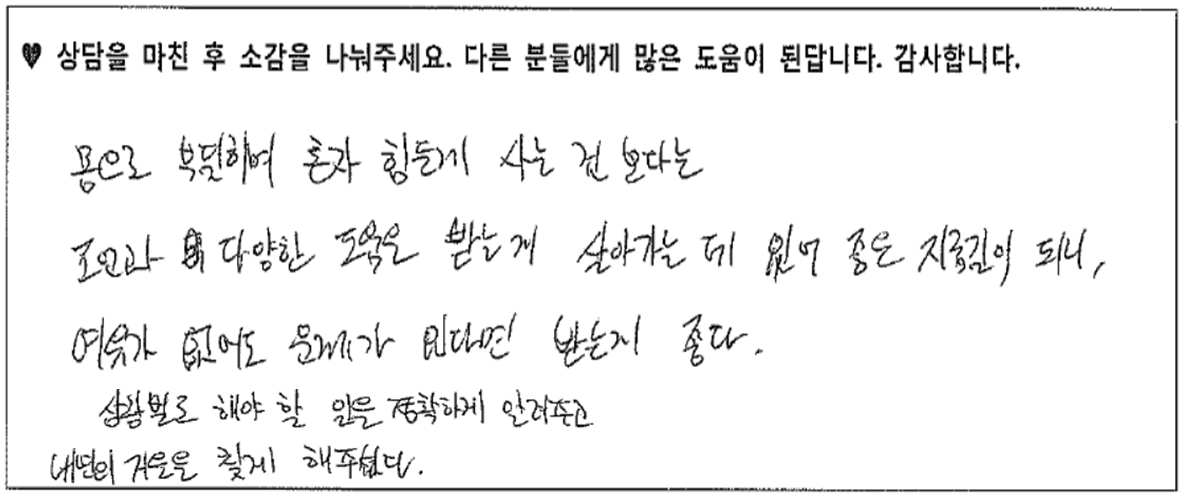 ♥ 상담을 마친 후 소감을 나눠주세요. 다른 분들에게 많은 도움이 된답니다. 감사합니다.
몸으로 부딪히며 혼자 힘들게 사는 것 보다는
조언과 다양한 도움은 받는게 살아가는 데 있어 좋은 지름길이 되니,
여유가 없어도 문제가 있다면 받는게 좋다.
상황별로 해야 할 일을 정확하게 알려주고
내면의 겨울을 찾게 해주셨다.